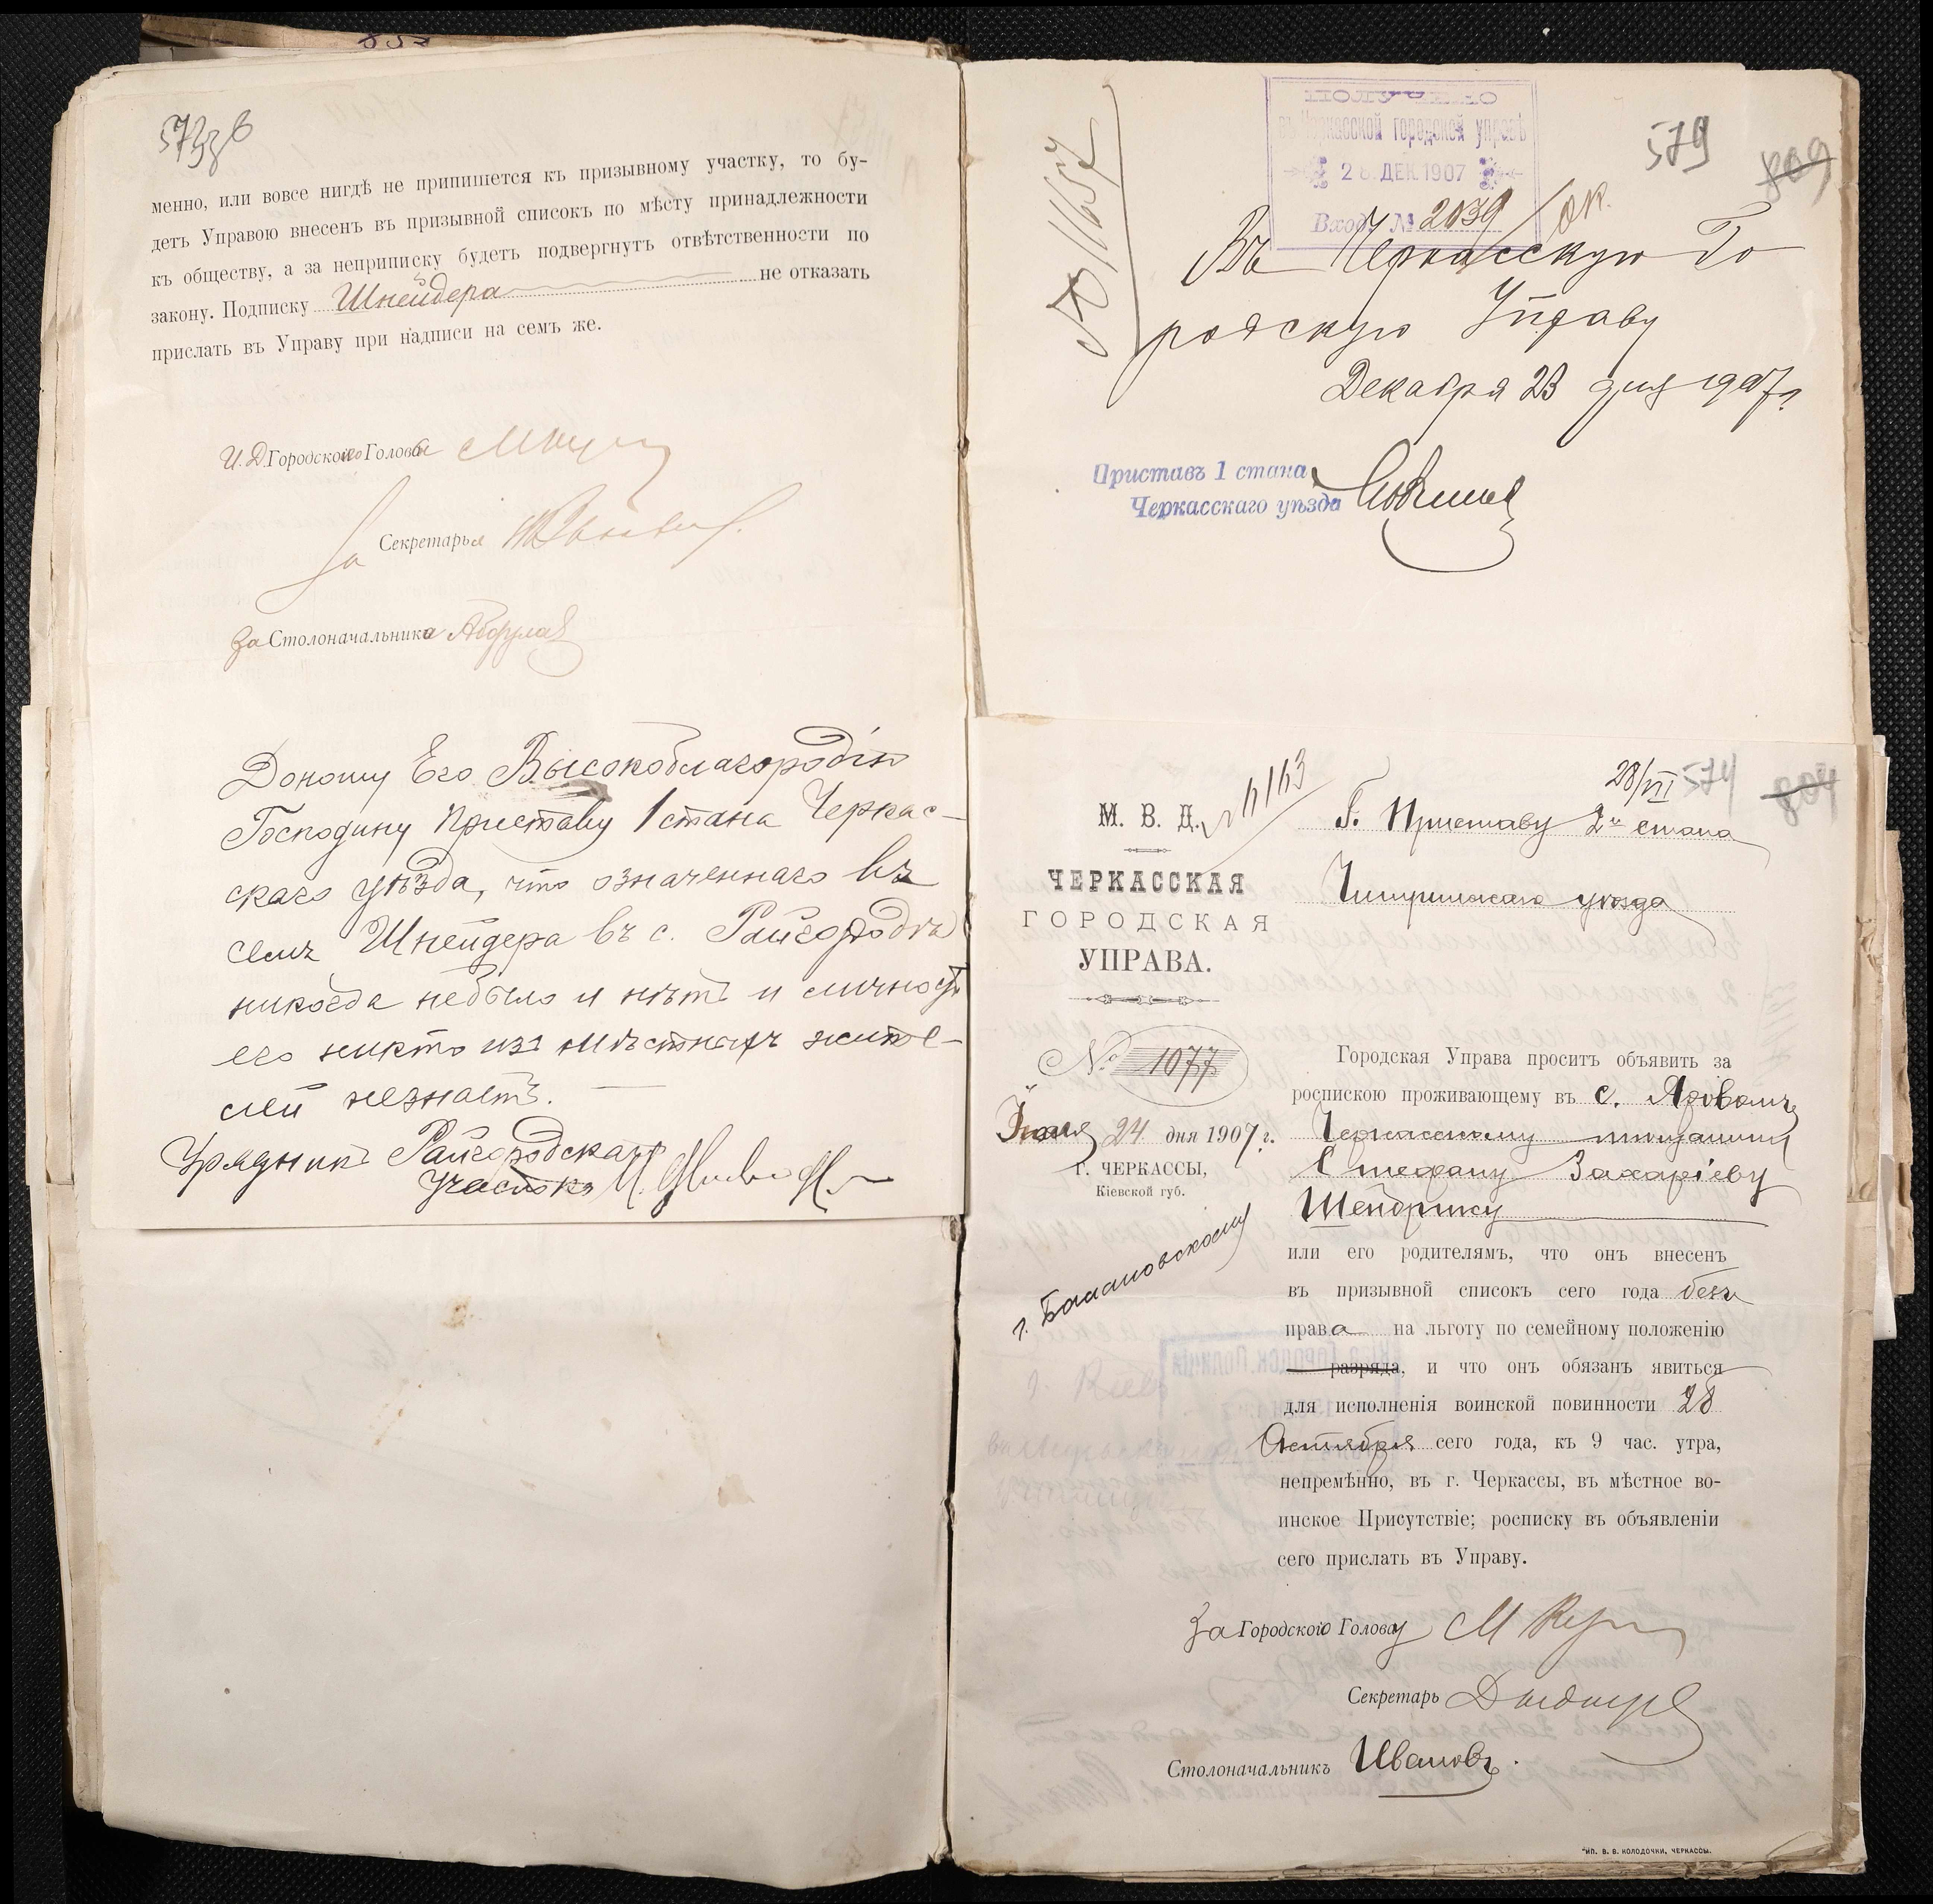 менно, или вовсе нигдѣ не припишется къ призывному участку, то бу-
детъ Управою внесенъ въ призывной списокъ по мѣсту принадлежности
къ обществу, а за неприписку будетъ подвергнутъ отвѣтственности по
закону. Подписку Шнейдера не отказать
прислать въ Управу при надписи на семъ же.
И. Д. Городского Головы
За Секретаря
За Столоначальника
Доношу Его Высокоблагородію
Господину Приставу 1 стана Черкас-
скаго уѣзда, что означеннаго въ
семъ Шнейдера въ с. Райгородѣ
никогда небыло и нѣтъ и личность
его никто изъ мѣстныхъ жите-
лей незнаетъ.
Урядникъ Райгородскаго
участка
ПОЛУЧЕНО
въ Черкасской городской управѣ
28 ДЕК. 1907
Вход. № 2039
579
809
№ 11657
Въ Черкасскую Го
родскую Управу
Декабря 23 дня 1907 г.
Приставъ 1 стана
Черкасскаго уѣзда
28/VII 574
804
М. В. Д.
ЧЕРКАССКАЯ
ГОРОДСКАЯ
УПРАВА.
№ 1077
24 дня 1907 г.
Г. ЧЕРКАССЫ,
Кіевской губ.
Г. Приставу 2го стана
Чигиринскаго уѣзда
Городская Управа проситъ объявить за
роспискою проживающему въ с.
Черкасскому мѣщанину
Стефану Захаріеву
Шендрику
или его родителямъ, что онъ внесенъ
въ призывной списокъ сего года безъ
права на льготу по семейному положенію
разряда, и что онъ обязанъ явиться
для исполненія воинской повинности 28
Октября сего года, къ 9 час. утра,
непремѣнно, въ г. Черкассы, въ мѣстное во-
инское Присутствіе; росписку въ объявленіи
сего прислать въ Управу.
г. Балановскому
За Городского Голову
Секретарь
Столоначальникъ Ивановъ.
ТИП. В. В. КОЛОДОЧКИ, ЧЕРКАССЫ.